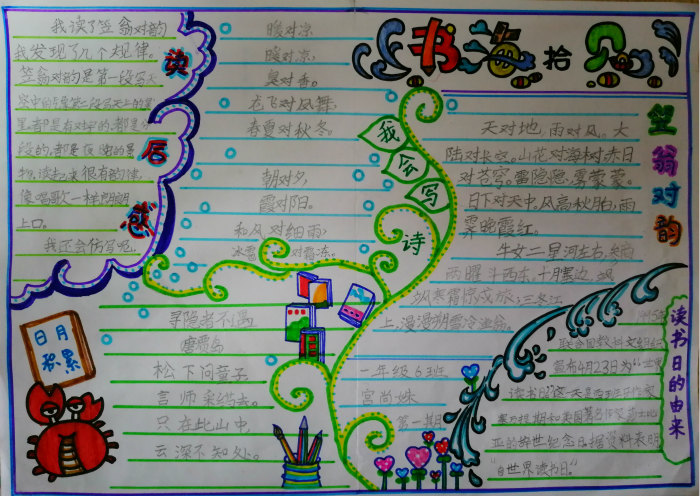 书海拾贝
我读了笠翁对韵
我发现了几个规律。
笠翁对韵的是第一段写天
物,读起来很有韵律,
像唱歌一样朗朗
上口。
我还会仿写呢。
读后感
暖对凉
臭对香。
龙飞对凤舞,
春夏对秋冬。
朝对夕,
霞对阳。
和风对细雨,
冰雪对霜冻。
我会写诗
笠翁对韵
天对地,雨对风。大
陆对长空。山花对海树,赤日
对苍穹。雷隐隐,雾蒙蒙。
日下对天中。风高秋月白,雨
霁晚霞红。
牛女二星河左右,参商
两曜斗西东。十月塞边,飒
飒寒霜惊戍旅;三冬江
上,漫漫朔雪冷渔翁。
日月积累
寻隐者不遇
贾岛
松下问童子
言师采药去。
只在此山中,
云深不知处。
一年级6班
宫尚姝
第一期
读书日的由来
1995年
联合国教科文组织
宣布4月23日为“世界
读书日”这一天是西班牙作家
亚的辞世纪念日据资料表明
“世界读书日”